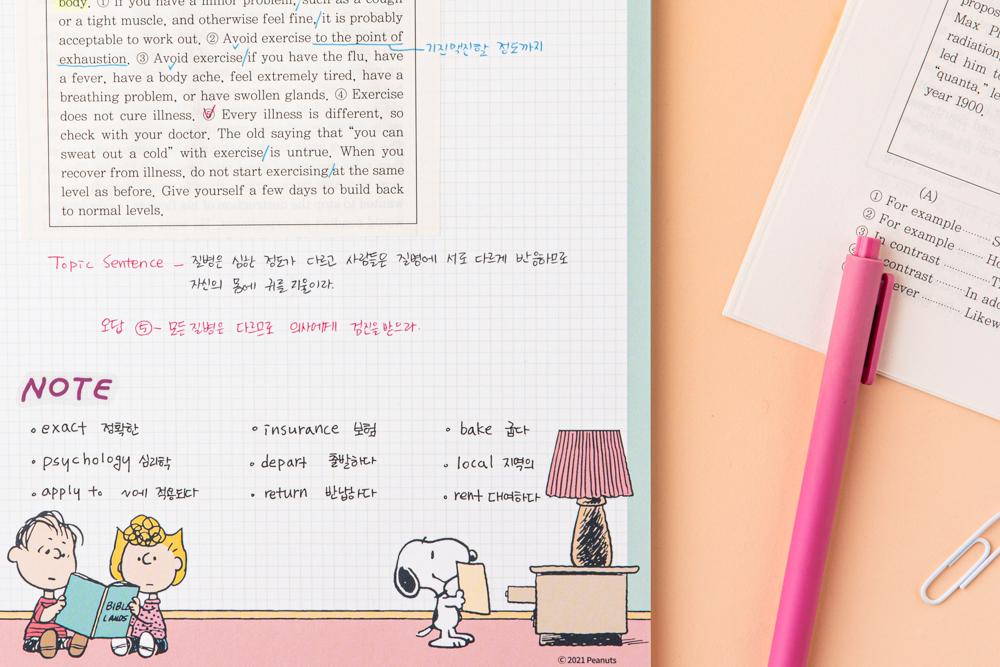 body. ① If you have a minor problem, such as a cough
or a tight muscle, and otherwise feel fine, it is probably
acceptable to work out. ② Avoid exercise to the point of
기진맥진할 정도까지
exhaustion. ③ Avoid exercise if you have the flu, have
a fever, have a body ache, feel extremely tired, have a
breathing problem, or have swollen glands. ④ Exercise
does not cure illness. ⑤ Every illness is different, so
check with your doctor. The old saying that “you can
sweat out a cold” with exercise is untrue. When you
recover from illness, do not start exercising at the same
level as before. Give yourself a few days to build back
to normal levels.
Topic Sentence - 질병은 심한 정도가 다르고 사람들은 질병에 서로 다르게 반응하므로
자신의 몸에 귀를 기울이라.
오답 ⑤ - 모든 질병은 다르므로 의사에게 검진을 받으라.
NOTE
exact 정확한
insurance 보험
bake 굽다
psychology 심리학
depart 출발하다
local 지역의
apply to ~에 적용되다
return 반납하다
rent 대여하다
BIBLE
LANDS
© 2021 Peanuts
propos
Max Pl
radiation,
led him to
“quanta,” le
year 1900.
(A)
① For example ········ S
② For example ········ Ho
③ In contrast ········ T
contrast ········ In add
ever ········ Likew